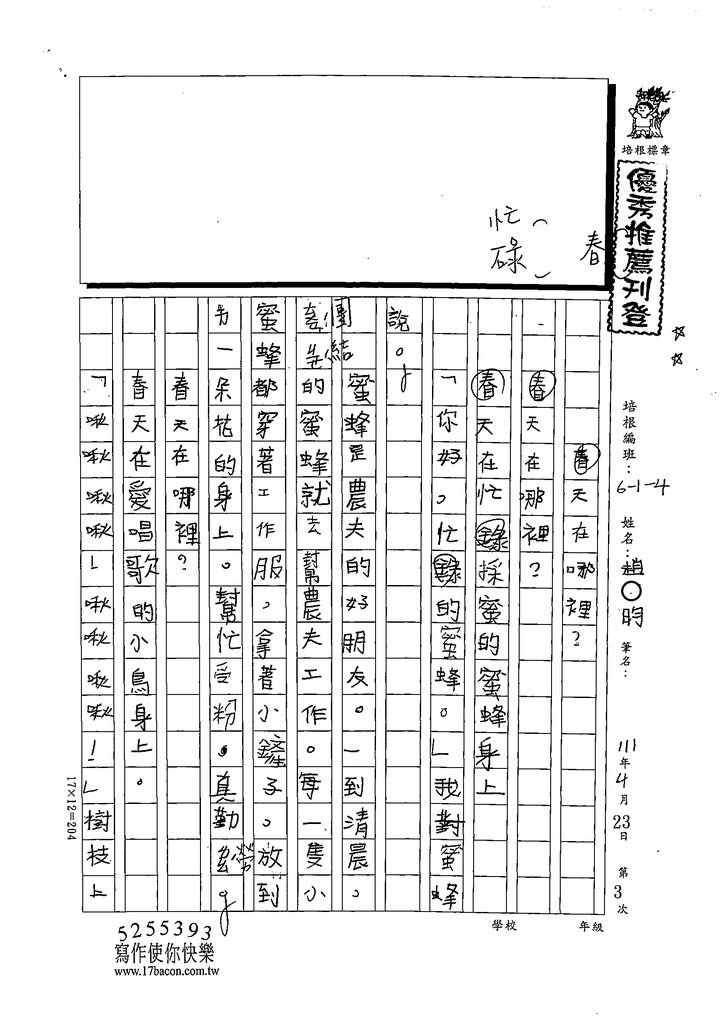 培根標章
優秀推薦刊登
培根編班:6-1-4 姓名:趙○昀 筆名:
111年4月23日 第3次
學校 年級
春
忙
碌
春天在哪裡?
春天在哪裡?
春天在忙錄採蜜的蜜蜂身上
「你好。忙錄的蜜蜂。」我對蜜蜂
說。
蜜蜂是農夫的好朋友。一到清晨,
團結的蜜蜂就去幫農夫工作。每一隻小
蜜蜂都穿著工作服,拿著小鏟子。放到
另一朵花的身上。幫忙受粉。真勤勞。
春天在哪裡?
春天在愛唱歌的小鳥身上。
「啾啾啾啾」啾啾啾啾!」樹枝上
17×12=204
5255393
寫作使你快樂
www.17bacon.com.tw